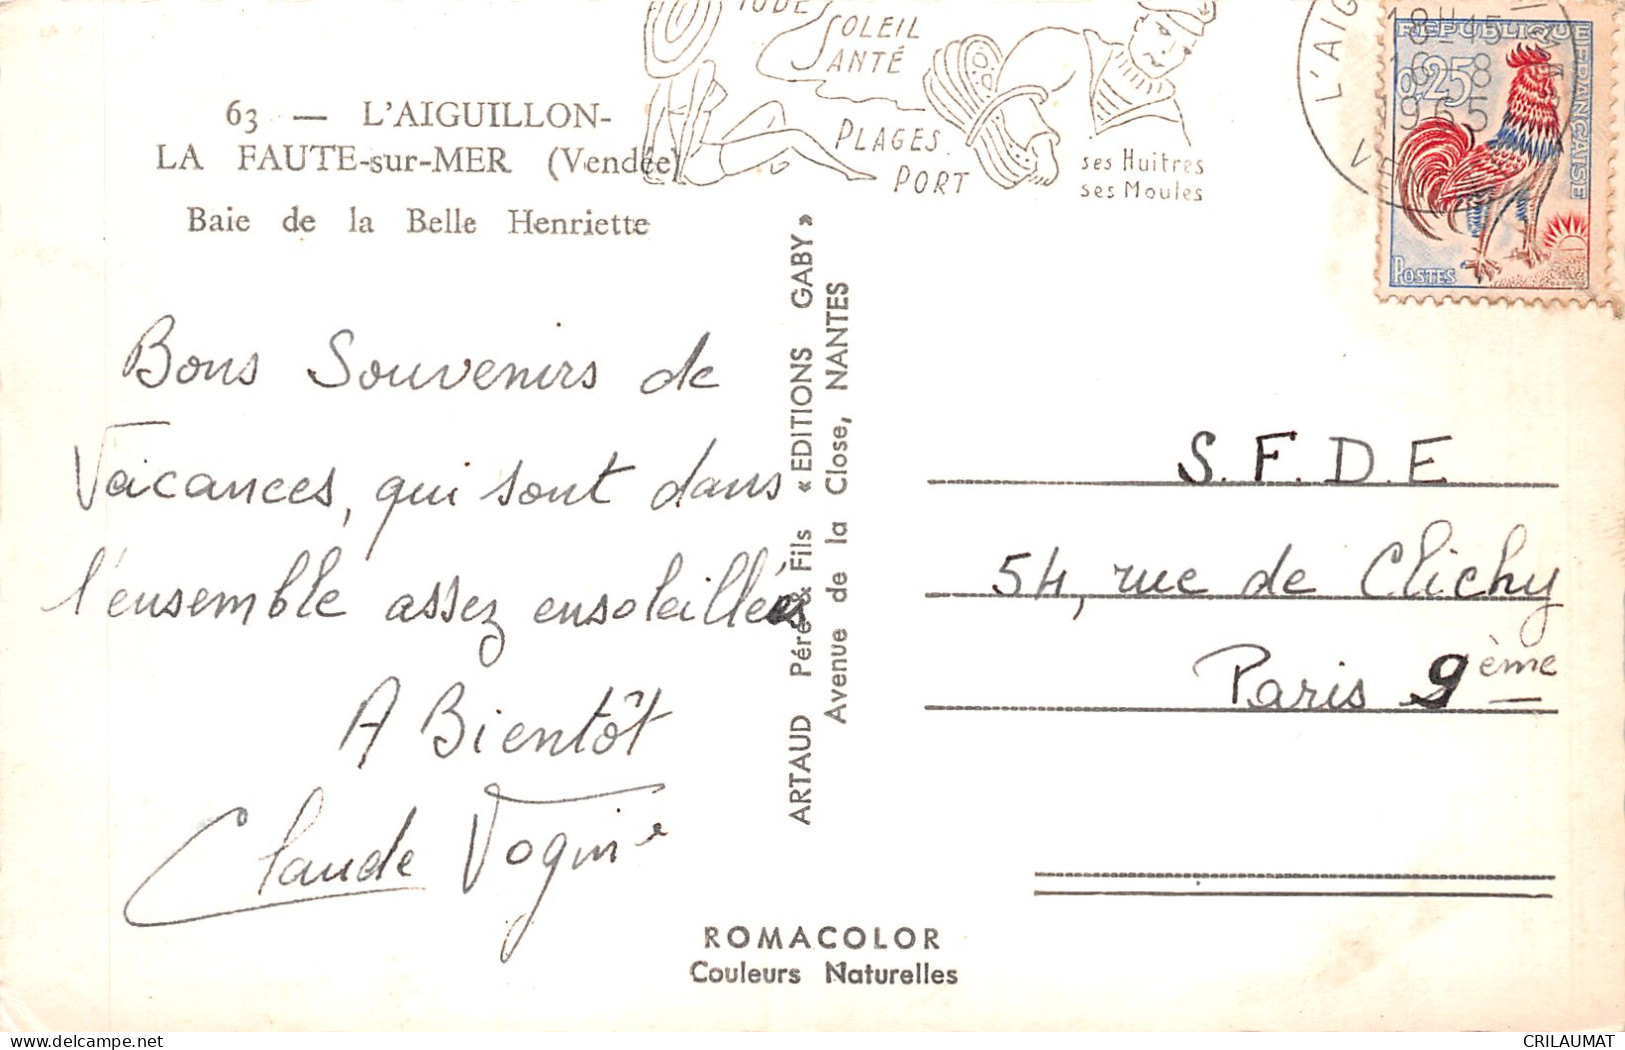 63 — L'AIGUILLON-
LA FAUTE-sur-MER (Vendée)
Baie de la Belle Henriette
SOLEIL
SANTÉ
PLAGES
PORT
ses Huitres
ses Moules
L'AIG
18H15
16 8
1965
REPUBLIQUE FRANÇAISE
0,25
POSTES
Bons Souvenirs de
Vacances, qui sont dans
l'ensemble assez ensoleillées
A Bientôt
Claude
ARTAUD Père & Fils « EDITIONS GABY »
Avenue de la Close, NANTES
S.F.D.E
54, rue de Clichy
Paris 9ème
ROMACOLOR
Couleurs Naturelles
delcampe.net
CRILAUMAT